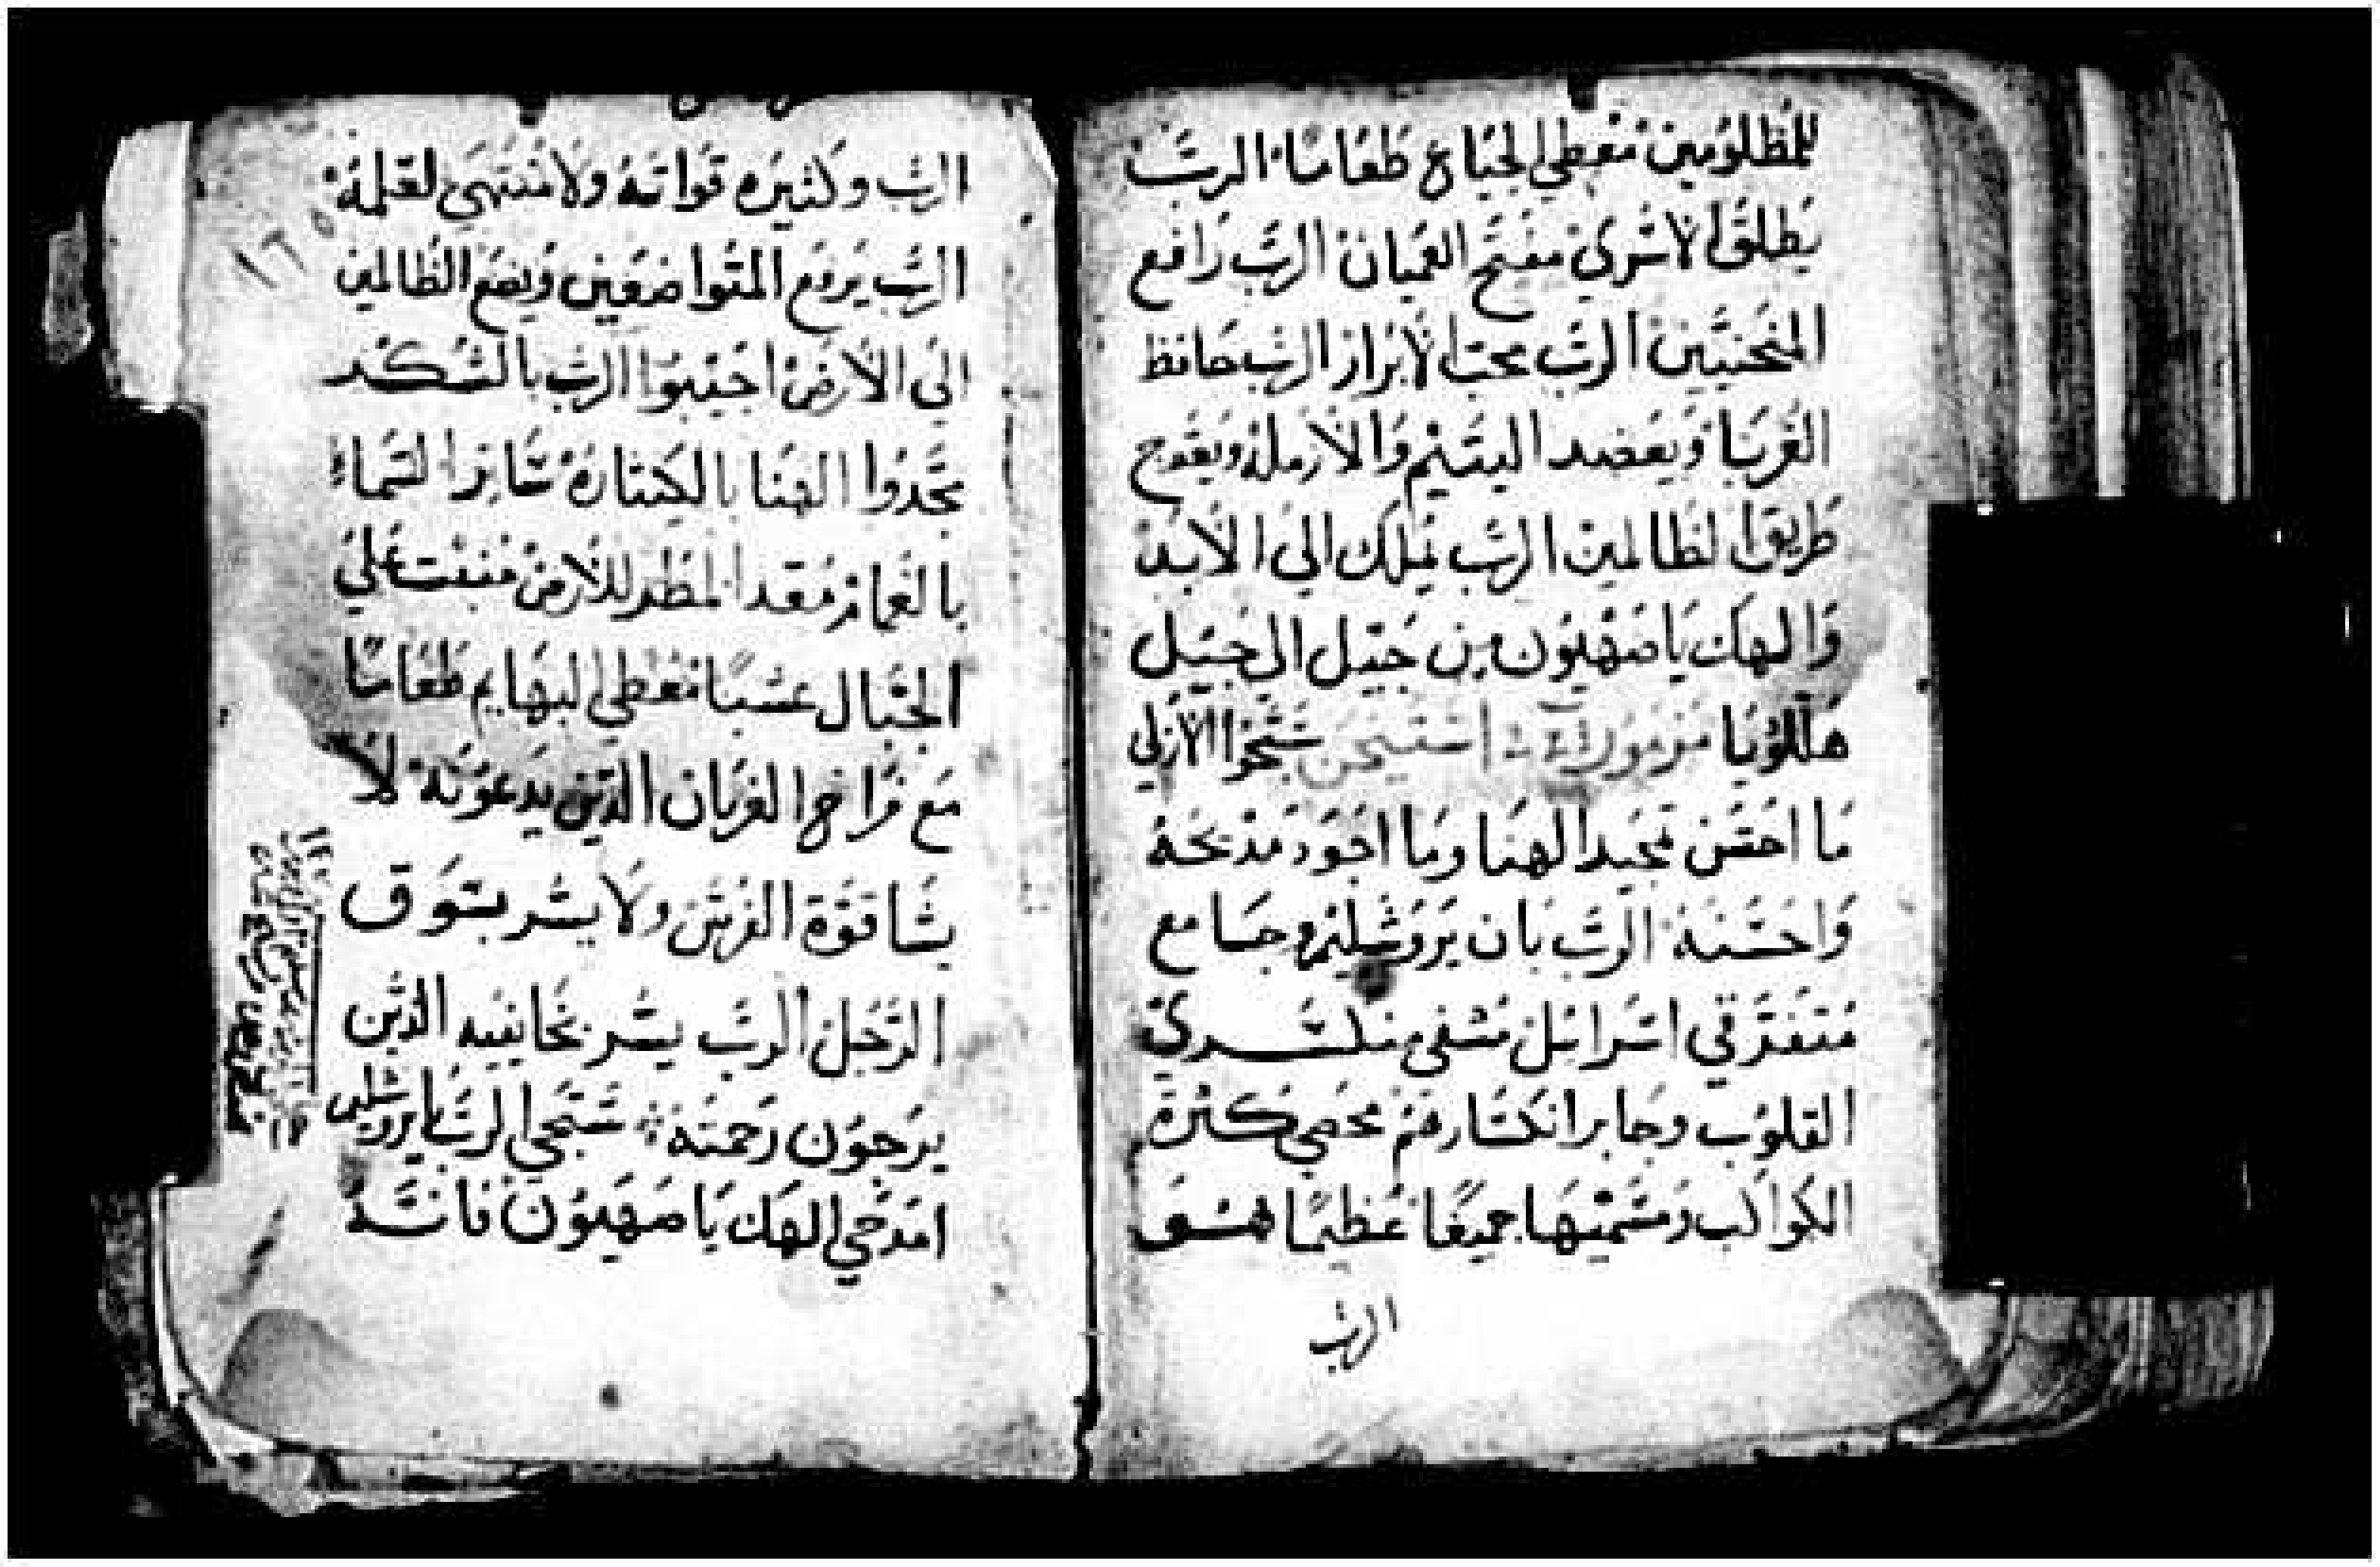 للمظلومين معطي الجياع طعاما الرب
يطلق الاسري مفتح العميان الرب رافع
المنحنيين الرب محب الابرار الرب حافظ
الغربا ويعضد اليتيم والارملة ويعوج
طريق الظالمين الرب يملك الي الابد
والهك يا صهيون من جيل الي جيل
هللويا مزمور سبحوا الازلي
ما احسن تمجيد الهنا وما اجود مديحه
واحسنه الرب بان يروشليم وجامع
متفرقي اسرايل مشفي منكسري
القلوب وجابر انكسارهم محصي كثرة
الكواكب ومسميها جميعا عظيما هو
الرب
الرب وكثيره قواته ولا منتهي لعلمه
الرب يرفع المتواضعين ويضع الظالمين
الي الارض اجيبوا الرب بالشكر
مجدوا الهنا بالكنارة ساتر السماء
بالغمام معد المطر للارض منبت علي
الجبال عشبا معطي البهايم طعاما
مع فراخ الغربان الذين يدعونه لا
يشا قوة الفرس ولا يسر بسوق
الرجل الرب يسر بخايفيه الذين
يرجون رحمته سبحي الرب يا يروشليم
امدحي الهك يا صهيون فانه
١٤٧